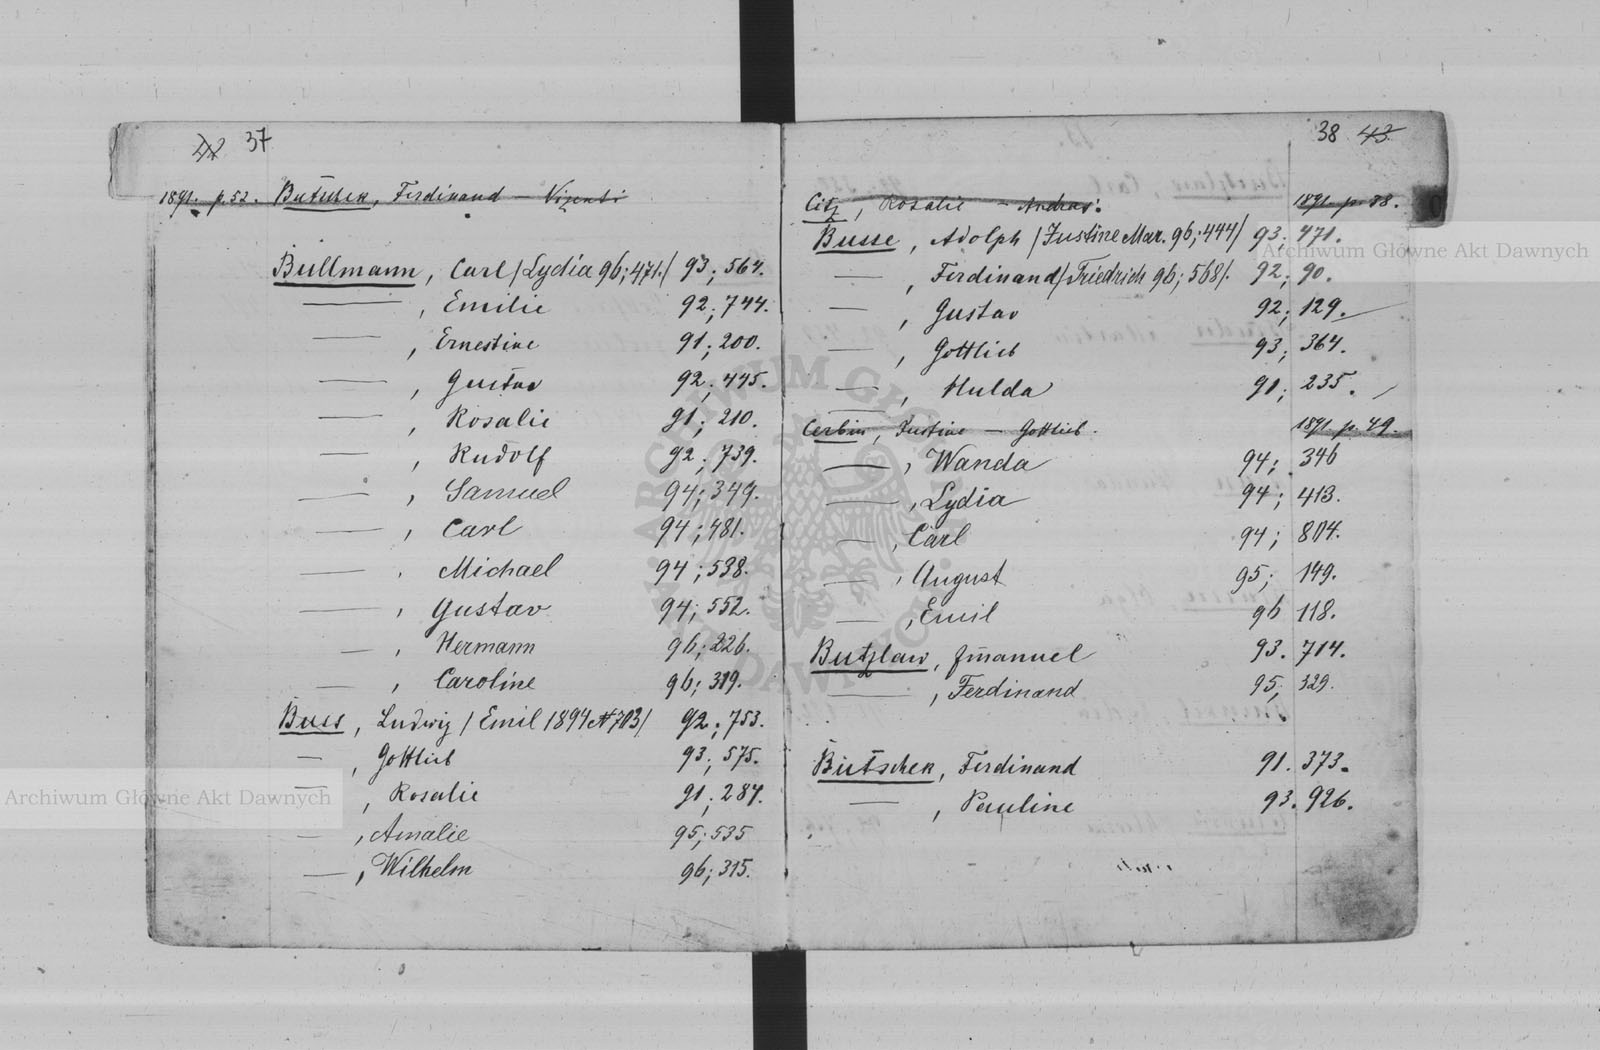 42 37
1891. p. 52. Butschek, Ferdinand —
Bullmann, Carl /Lydia 96; 471./ 93; 564.
—, Emilie 92; 744.
—, Ernestine 91; 200.
—, Gustav 92; 445.
—, Rosalie 91; 210.
—, Rudolf 92; 739.
—, Samuel 94; 349.
—, Carl 94; 481.
—, Michael 94; 538.
—, Gustav 94; 552.
—, Hermann 96; 226.
—, Caroline 96; 319.
Buss, Ludwig /Emil 1894 № 703/ 92; 753.
—, Gottlieb 93; 575.
—, Rosalie 91; 287.
—, Amalie 95; 535
—, Wilhelm 96; 315.
38 43
Citz, Rosalie — Andreas. 1891. p. 38.
Busse, Adolph /Justine Mar. 96; 444/ 93; 471.
—, Ferdinand /Friedrich 96; 568/. 92; 90.
—, Gustav 92; 129.
—, Gottlieb 93; 364.
—, Hulda 91; 235.
Cerbin, Justine — Gottlieb. 1891. p. 49.
—, Wanda 94; 346
—, Lydia 94; 413.
—, Carl 94; 804.
—, August 95; 149.
—, Emil 96 118.
Butzlaw, Emanuel 93. 714.
—, Ferdinand 95; 329.
Butschek, Ferdinand 91. 373.
—, Pauline 93. 926.
Archiwum Główne Akt Dawnych
Archiwum Główne Akt Dawnych
ARCHIWUM GŁÓWNE AKT DAWNYCH